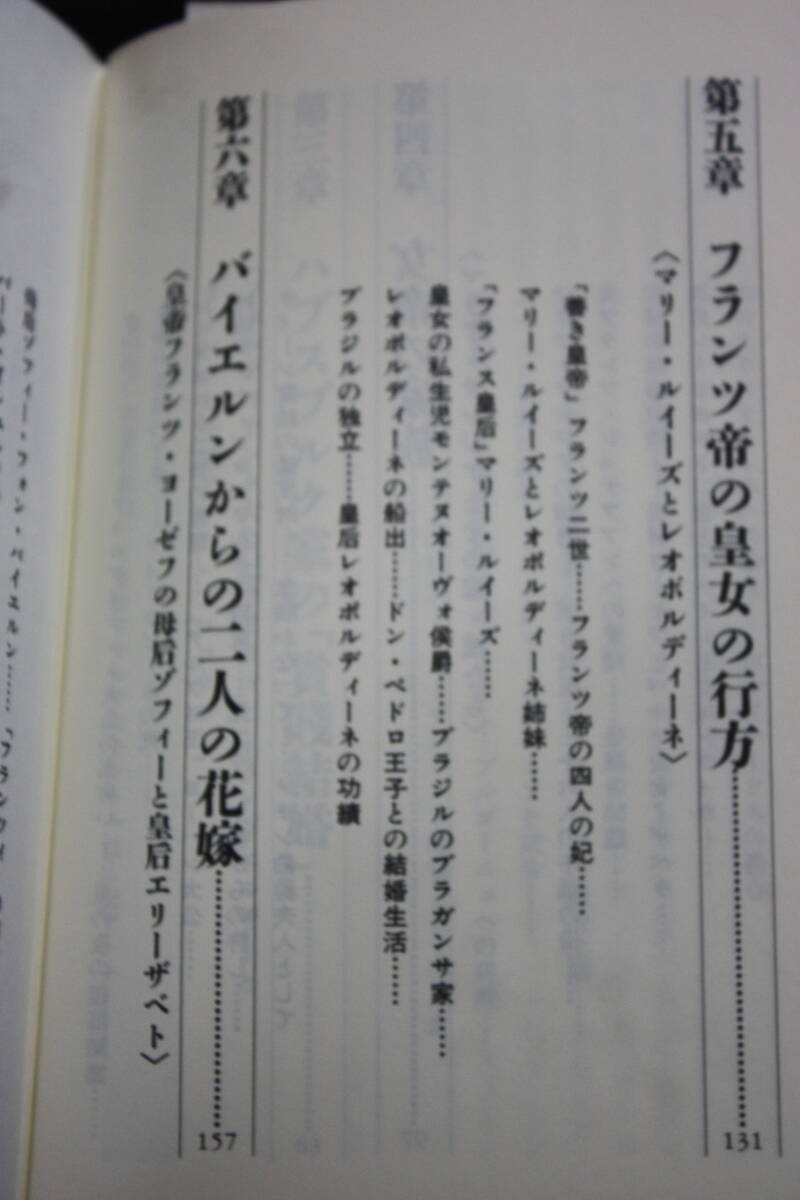 第五章 フランツ帝の皇女の行方…………131
〈マリー・ルイーズとレオポルディーネ〉
「善き皇帝」フランツ二世……フランツ帝の四人の妃……
マリー・ルイーズとレオポルディーネ姉妹……
「フランス皇后」マリー・ルイーズ……
皇女の私生児モンテヌオーヴォ侯爵……ブラジルのブラガンサ家……
レオポルディーネの船出……ドン・ペドロ王子との結婚生活……
ブラジルの独立……皇后レオポルディーネの功績
第六章 バイエルンからの二人の花嫁…………157
〈皇帝フランツ・ヨーゼフの母后ゾフィーと皇后エリーザベト〉
ゾフィー・フォン・バイエルン……